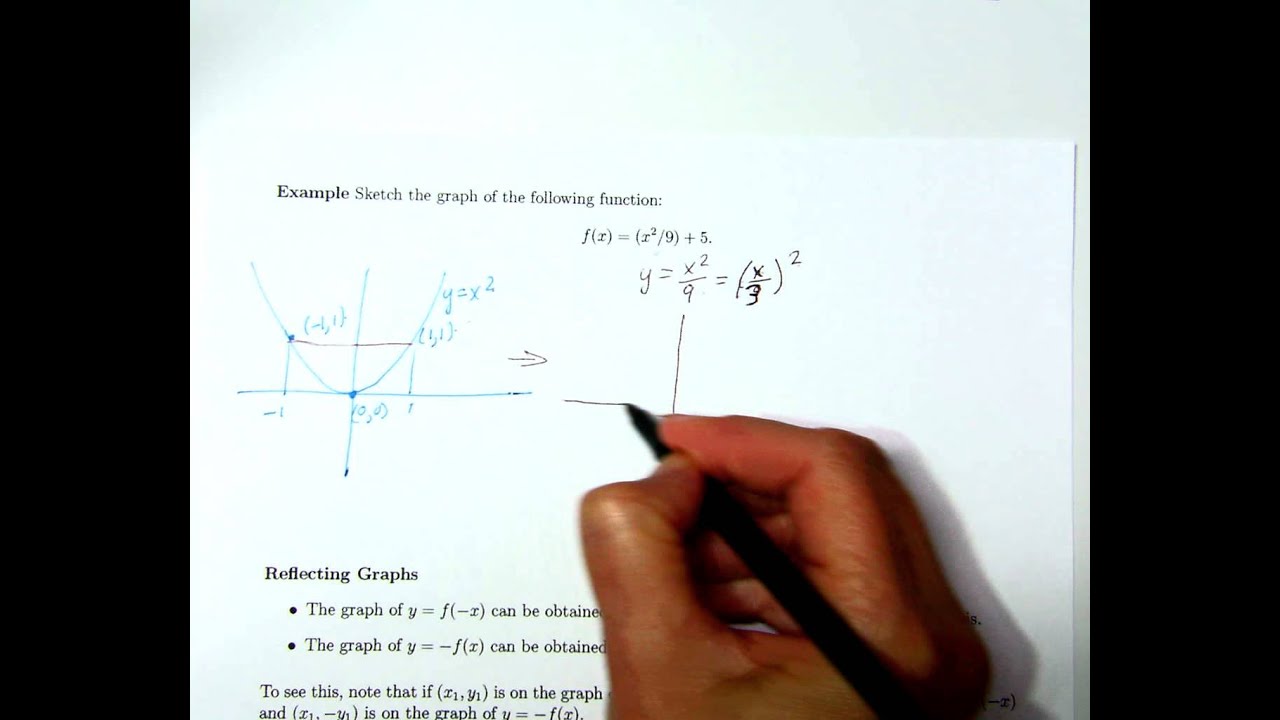 Example Sketch the graph of the following function:
f(x) = (x²/9) + 5.
y = x²/9 = (x/3)²
y = x²
(-1,1)
(1,1)
-1
(0,0)
1
Reflecting Graphs
• The graph of y = f(−x) can be obtained
• The graph of y = −f(x) can be obtained
To see this, note that if (x₁, y₁) is on the graph
−x)
and (x₁, −y₁) is on the graph of y = −f(x).